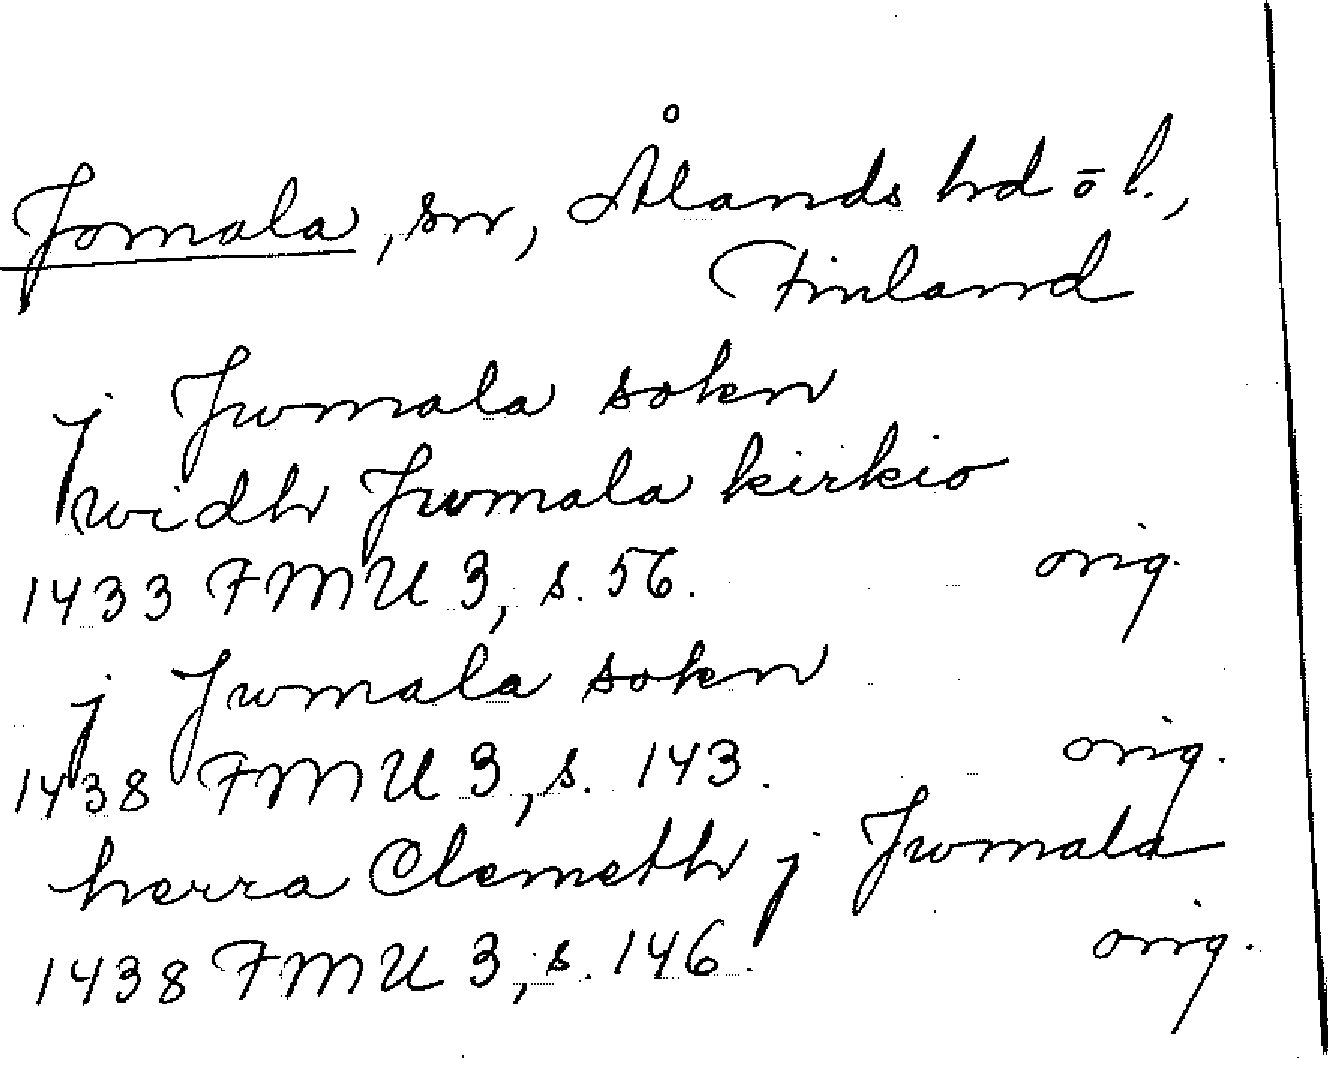 Jomala, sn, Ålands hd o l.,
Finland
j Jwmala sokn
widh Jwmala kirkio
1433 FMU 3, s. 56. orig.
j Jwmala sokn
1438 FMU 3, s. 143. orig.
herra Clemeth j Jwmala
1438 FMU 3, s. 146. orig.